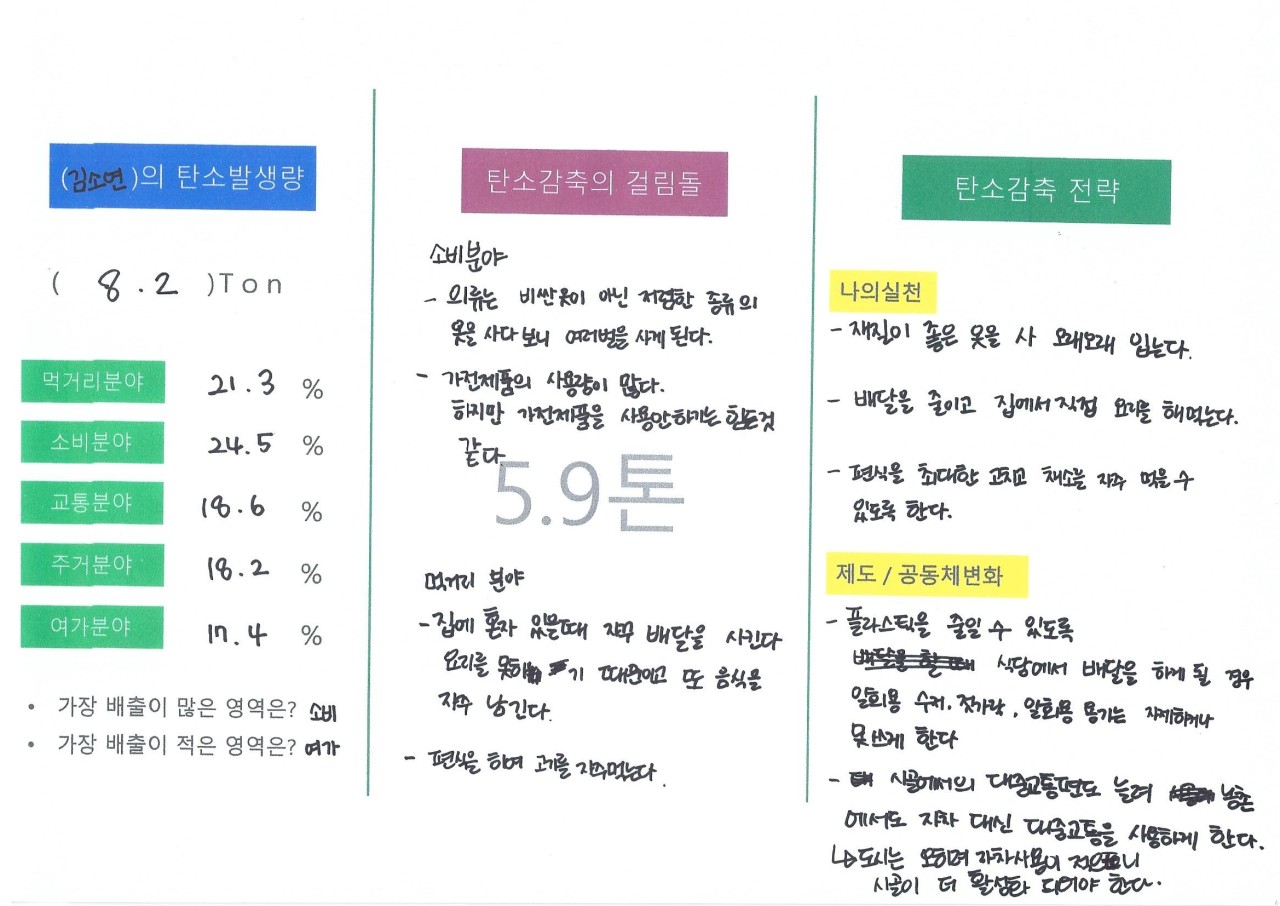 (김소연)의 탄소발생량
( 8.2 )Ton
먹거리분야 21.3 %
소비분야 24.5 %
교통분야 18.6 %
주거분야 18.2 %
여가분야 17.4 %
• 가장 배출이 많은 영역은? 소비
• 가장 배출이 적은 영역은? 여가
탄소감축의 걸림돌
소비분야
- 의류는 비싼옷이 아닌 저렴한 종류의
옷을 사다보니 여러벌을 사게 된다.
- 가전제품의 사용량이 많다.
하지만 가전제품을 사용안하기는 힘든것
같다.
5.9톤
먹거리 분야
- 집에 혼자 있을때 자꾸 배달을 시킨다
요리를 못하기 때문이고 또 음식을
자주 남긴다.
- 편식을 하며 고기를 자주먹는다.
탄소감축 전략
나의실천
- 재질이 좋은 옷을 사 오래오래 입는다.
- 배달을 줄이고 집에서 직접 요리를 해먹는다.
- 편식을 최대한 고치고 채소를 자주 먹을 수
있도록 한다.
제도 / 공동체변화
- 플라스틱을 줄일 수 있도록
식당에서 배달을 하게 될 경우
일회용 수저, 젓가락, 일회용 용기는 자제하거나
못쓰게 한다
- 시골에서의 대중교통편도 늘려 농촌
에서도 자차 대신 대중교통을 사용하게 한다.
↳ 도시는 오히려 자차사용이 적으니
시골이 더 활성화 되어야 한다.